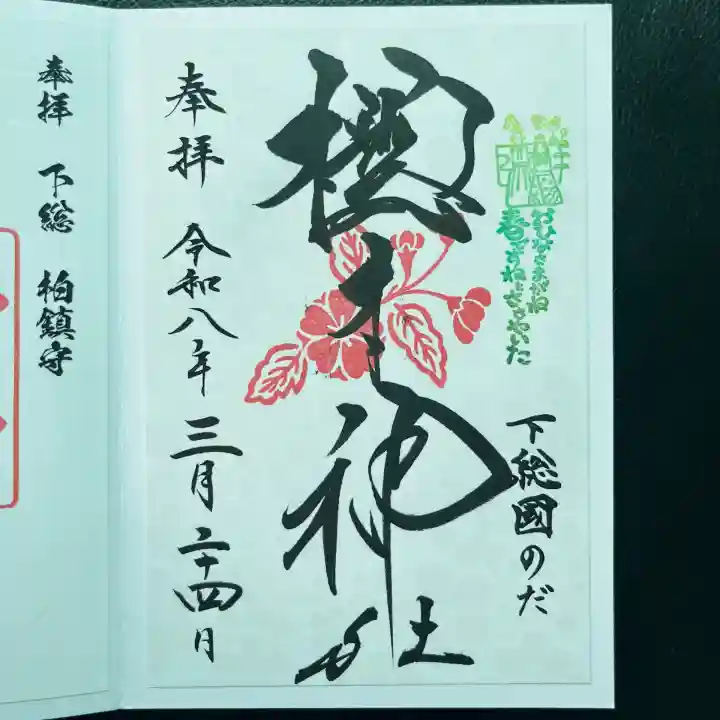 下総國のだ
おひなさまがね
春ですねとささやいた
櫻木神社
奉拝 令和八年 三月二十四日
奉拝 下総 柏鎮守